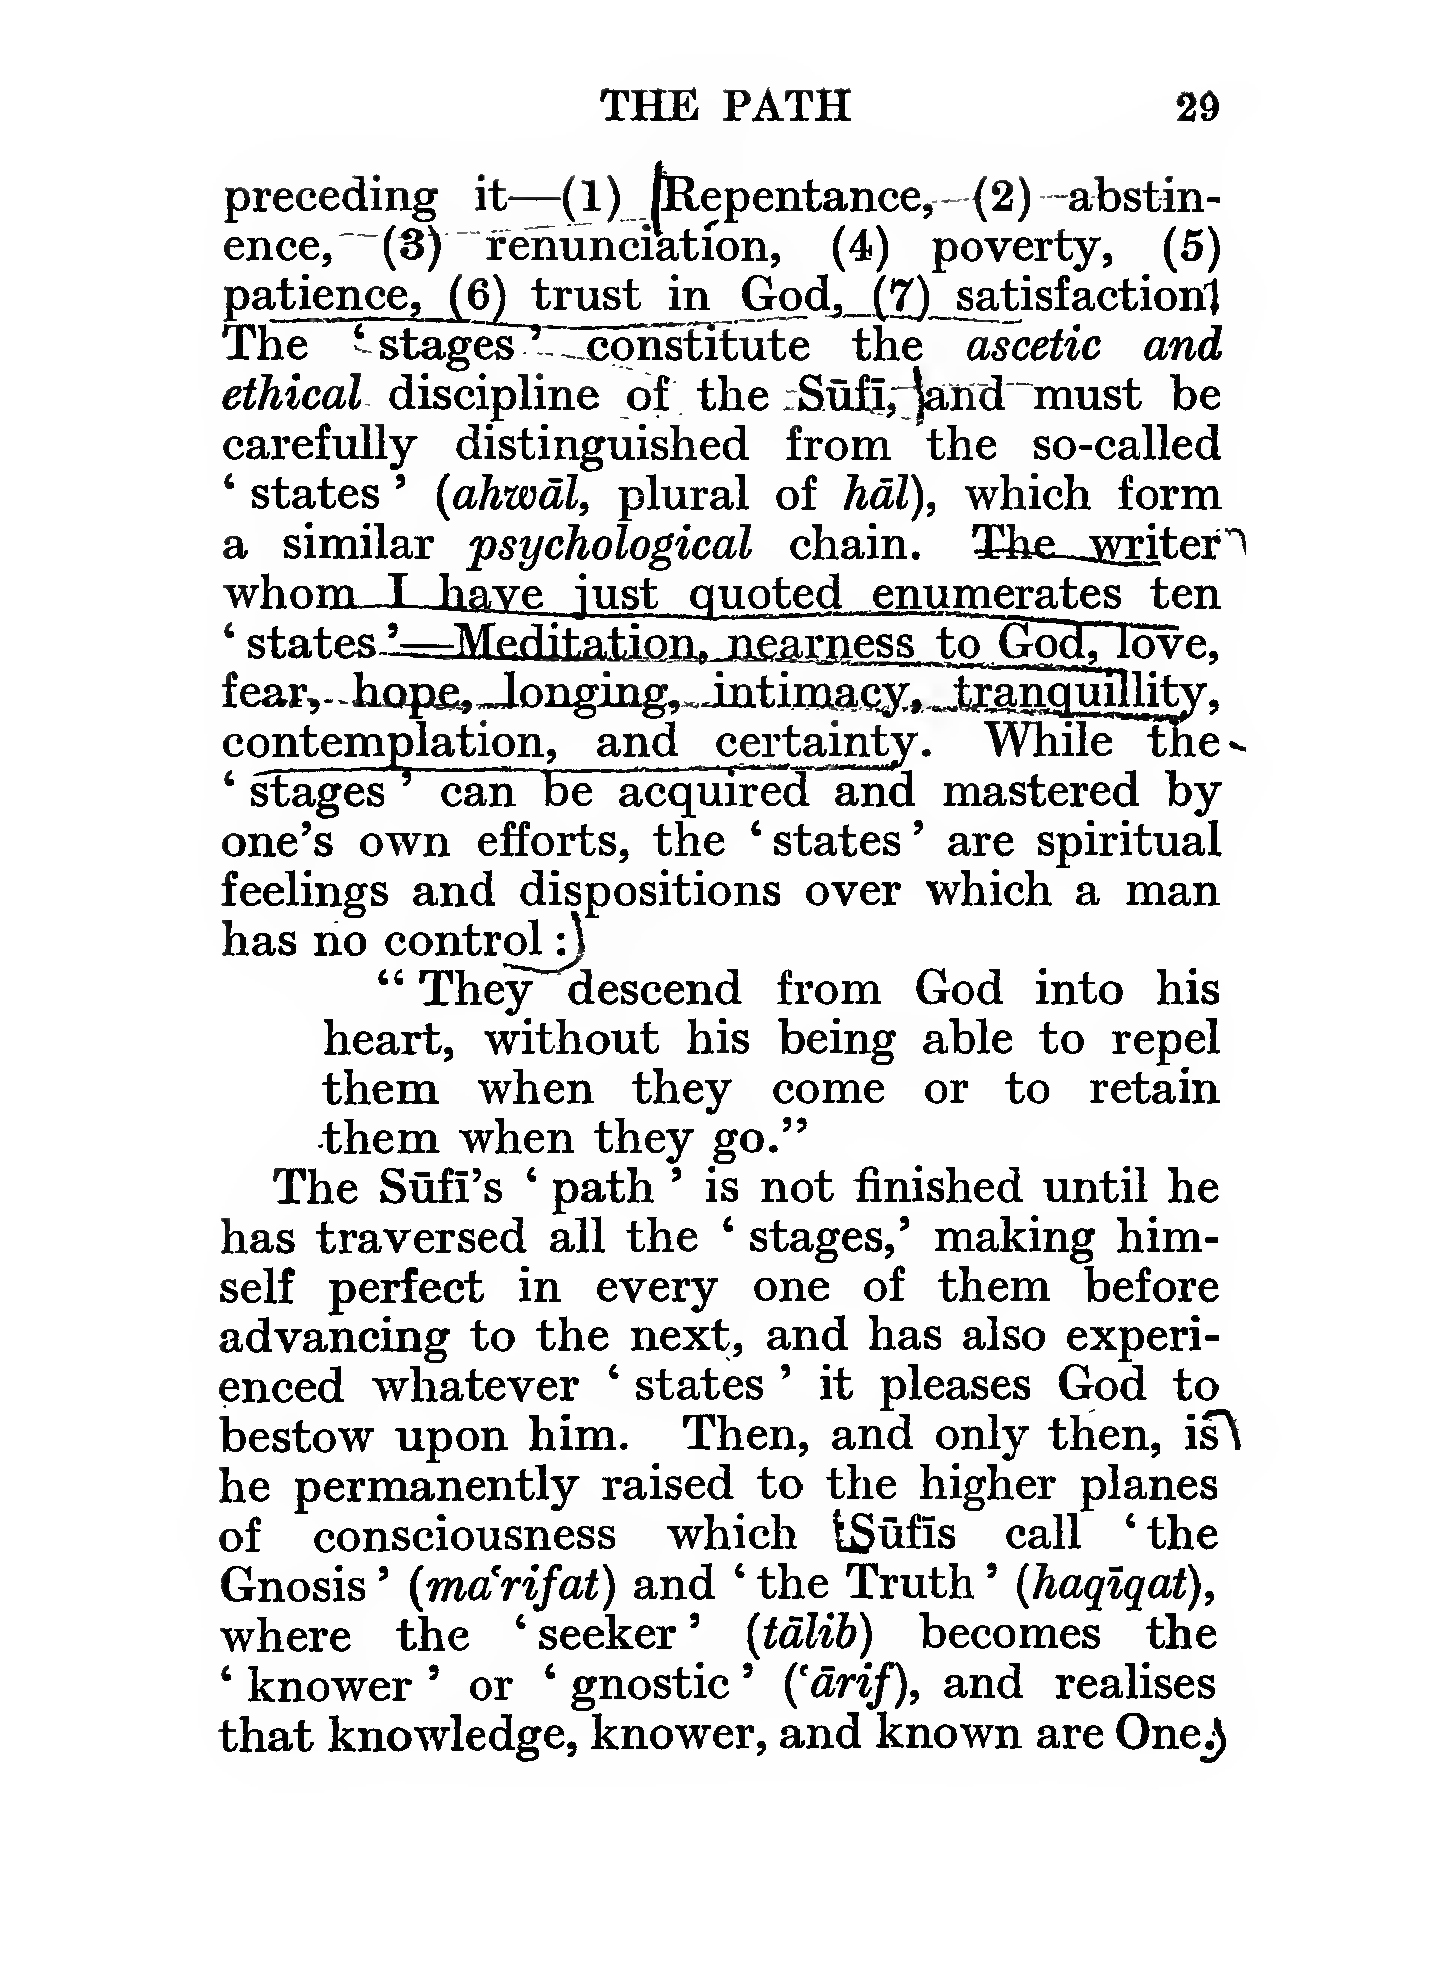 THE PATH 29
preceding it—(1) Repentance, (2) abstin-
ence, (3) renunciation, (4) poverty, (5)
patience, (6) trust in God, (7) satisfaction
The ‘ stages ’ constitute the ascetic and
ethical discipline of the Sūfī, and must be
carefully distinguished from the so-called
‘ states ’ (ahwāl, plural of hāl), which form
a similar psychological chain. The writer
whom I have just quoted enumerates ten
‘ states ’—Meditation, nearness to God, love,
fear, hope, longing, intimacy, tranquillity,
contemplation, and certainty. While the
‘ stages ’ can be acquired and mastered by
one’s own efforts, the ‘ states ’ are spiritual
feelings and dispositions over which a man
has no control :
“ They descend from God into his
heart, without his being able to repel
them when they come or to retain
them when they go.”
The Sūfī’s ‘ path ’ is not finished until he
has traversed all the ‘ stages,’ making him-
self perfect in every one of them before
advancing to the next, and has also experi-
enced whatever ‘ states ’ it pleases God to
bestow upon him. Then, and only then, is
he permanently raised to the higher planes
of consciousness which Sūfīs call ‘ the
Gnosis ’ (ma‘rifat) and ‘ the Truth ’ (haqīqat),
where the ‘ seeker ’ (tālib) becomes the
‘ knower ’ or ‘ gnostic ’ (‘ārif), and realises
that knowledge, knower, and known are One.